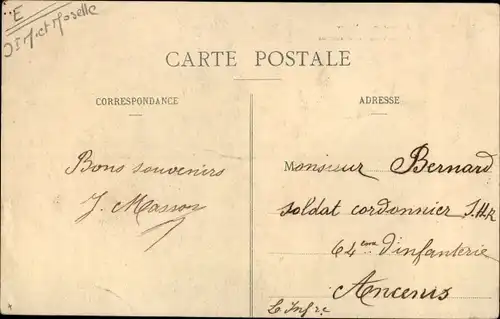 E
et Moselle
CARTE POSTALE
CORRESPONDANCE
ADRESSE
Bons souvenirs
J. Masson
Monsieur Bernard
soldat cordonnier
64eme d'infanterie
Ancenis
Le Infre